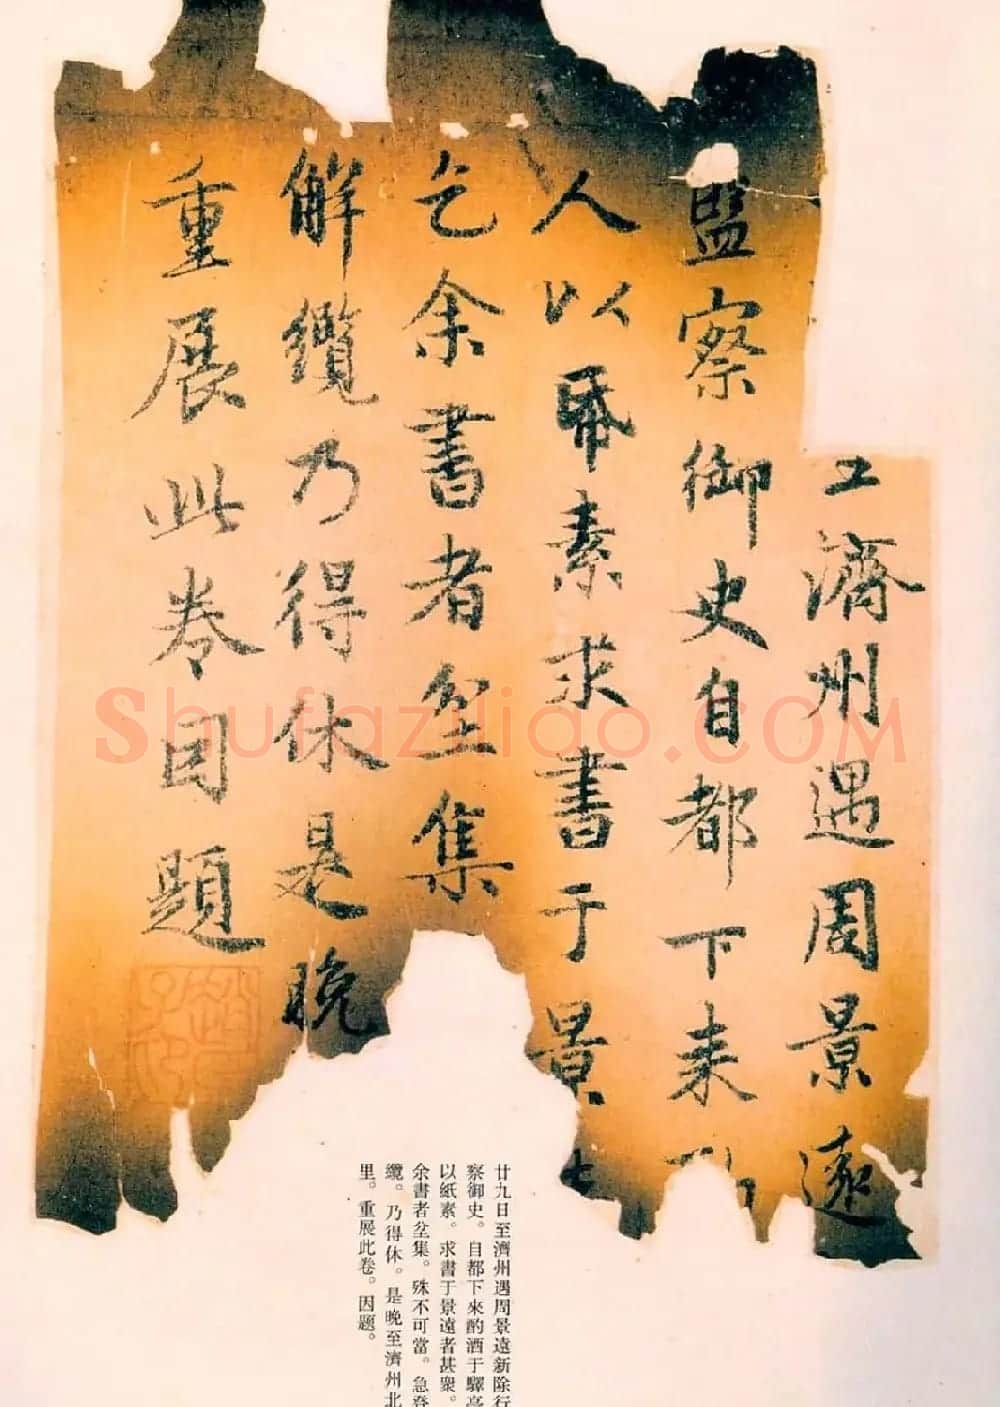 濟州遇周景遠
監察御史自都下来
人以帋素求書于景
乞余書者坌集
解纜乃得休是晚
重展此卷因題
廿九日至濟州遇周景遠新除行
察御史。自都下來酌酒于驛亭
以紙素。求書于景遠者甚衆。
余書者坌集。殊不可當。急登
纜。乃得休。是晚至濟州北
里。重展此卷。因題。
Shufaziliao.COM